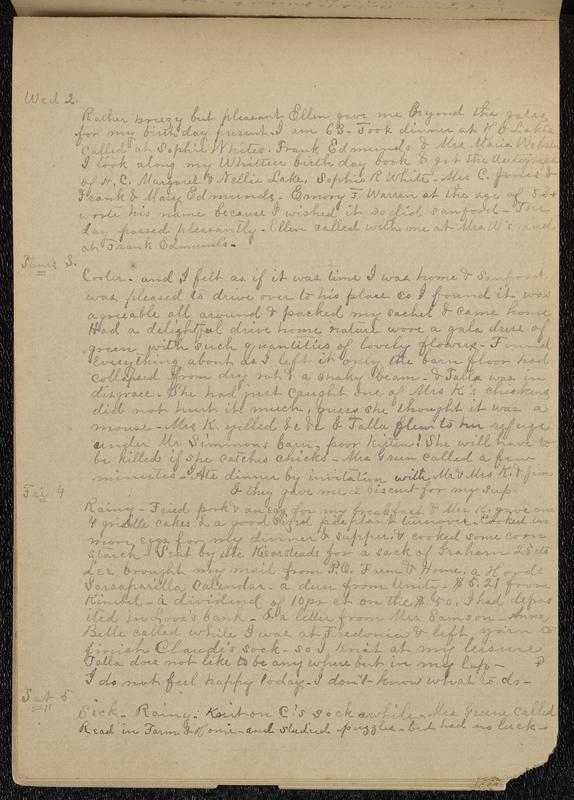 Wed 2.
Rather breezy but pleasant. Ellen gave me Beyond the gates
for my birth day present. I am 63. Took dinner at H C Lakes
Called at Sophia Whites. Frank Edmunds & Mrs Maria Webster
I took along my Whittier birth day book & got the autographs
of H. C. Margaret & Nellie Lake, Sophia R White. Mrs C. Jones &
Frank & Mary Edmunds. Emory F. Warren at the age of
wrote his name because I wished it so did Sanford. The
day passed pleasantly. Ellen called with me at Mrs W's and
at Frank Edmunds.
Thurs 3.
Cooler. and I felt as if it was time I was home & Sanford
was pleased to drive over to his place so I found it was
agreeable all around & packed my sachel & came home
Had a delightful drive home nature wore a gala dress of
green with such quantities of lovely flowers. Found
everything about as I left it only the barn floor had
collapsed from dry rot & a shaky beam. & Talla was in
disgrace. She had just caught one of Mrs K's chickens
did not hurt it much, guess she thought it was a
mouse. Mrs K. yelled &c &c & Talla flew to her refuge
under Mr Simmons barn, poor kitten! She will have to
be killed if she catches chicks. Mrs Green called a few
minutes. Ate dinner by invitation with Mr & Mrs K. & Jim
& they gave me 2 biscuit for my sup.
Fri 4
Rainy. Fried pork & an egg for my breakfast & Mrs K. gave me
4 griddle cakes & a good sized pieplant turnover. Cooked two
more eggs for my dinner & supper. & cooked some corn
starch. Sent by the Kearsleads for a sack of Graham 25 cts
Lee brought my mail from P.O. Farm & Home, a Hoods
Sarsaparilla Calendar. a dun from Unity. $5.21 from
Kimbel. a dividend of 10 pr ct on the $50. I had depos
ited in Love's bank. & a letter from Mrs Samson. Anna
Belle called while I was at Fredonia & left yarn to
finish Claude's sock. so I knit at my leisure
Talla does not like to be any where but in my lap. ?
I do not feel happy today. I don't know what to do.
Sat 5
Sick. Rainy. Knit on C's sock awhile. Mrs Greene called
Read in Farm & Home. and studied puzzles. but had no luck.